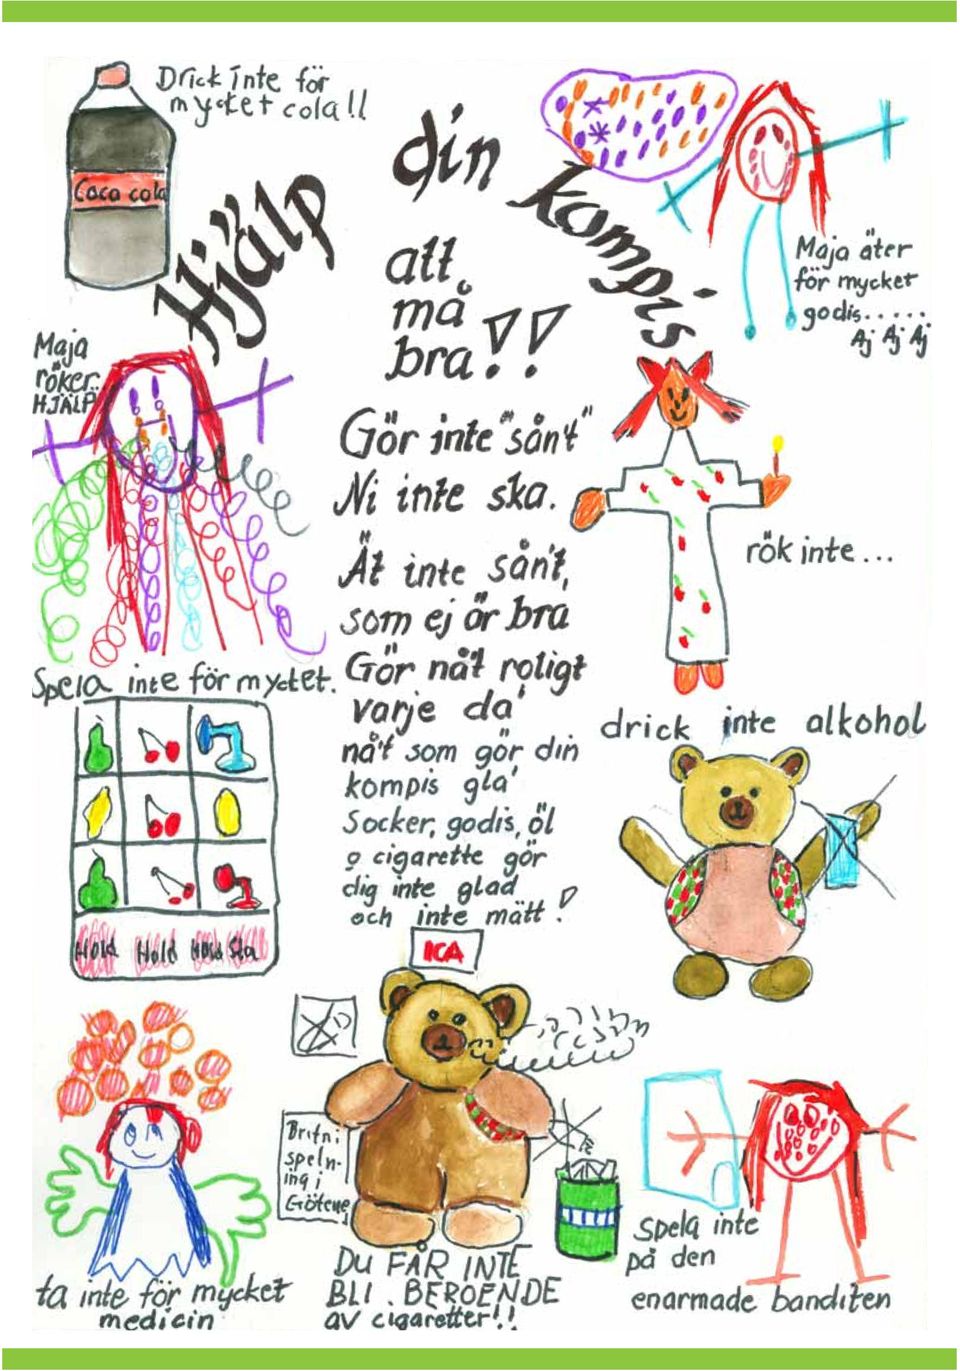 Drick inte för
mycket cola!!
Coca cola
Hjälp din kompis
att
må
bra!!
Maja äter
för mycket
godis.....
Aj Aj Aj
Maja
röker..
HJÄLP
Gör inte "sån't"
Ni inte ska.
Ät inte sån't,
som ej är bra
Gör nå't roligt
varje da'
nå't som gör din
kompis gla'
Socker, godis, öl
o cigarette gör
dig inte glad
och inte mätt!
rök inte...
Spela inte för mycket.
Hold Hold Hold Sta
drick inte alkohol
ICA
Britn i
speln-
ing i
Götene
ta inte för mycket
medicin
DU FÅR INTE
BLI . BEROENDE
av cigaretter!!
Spela inte
på den
enarmade banditen